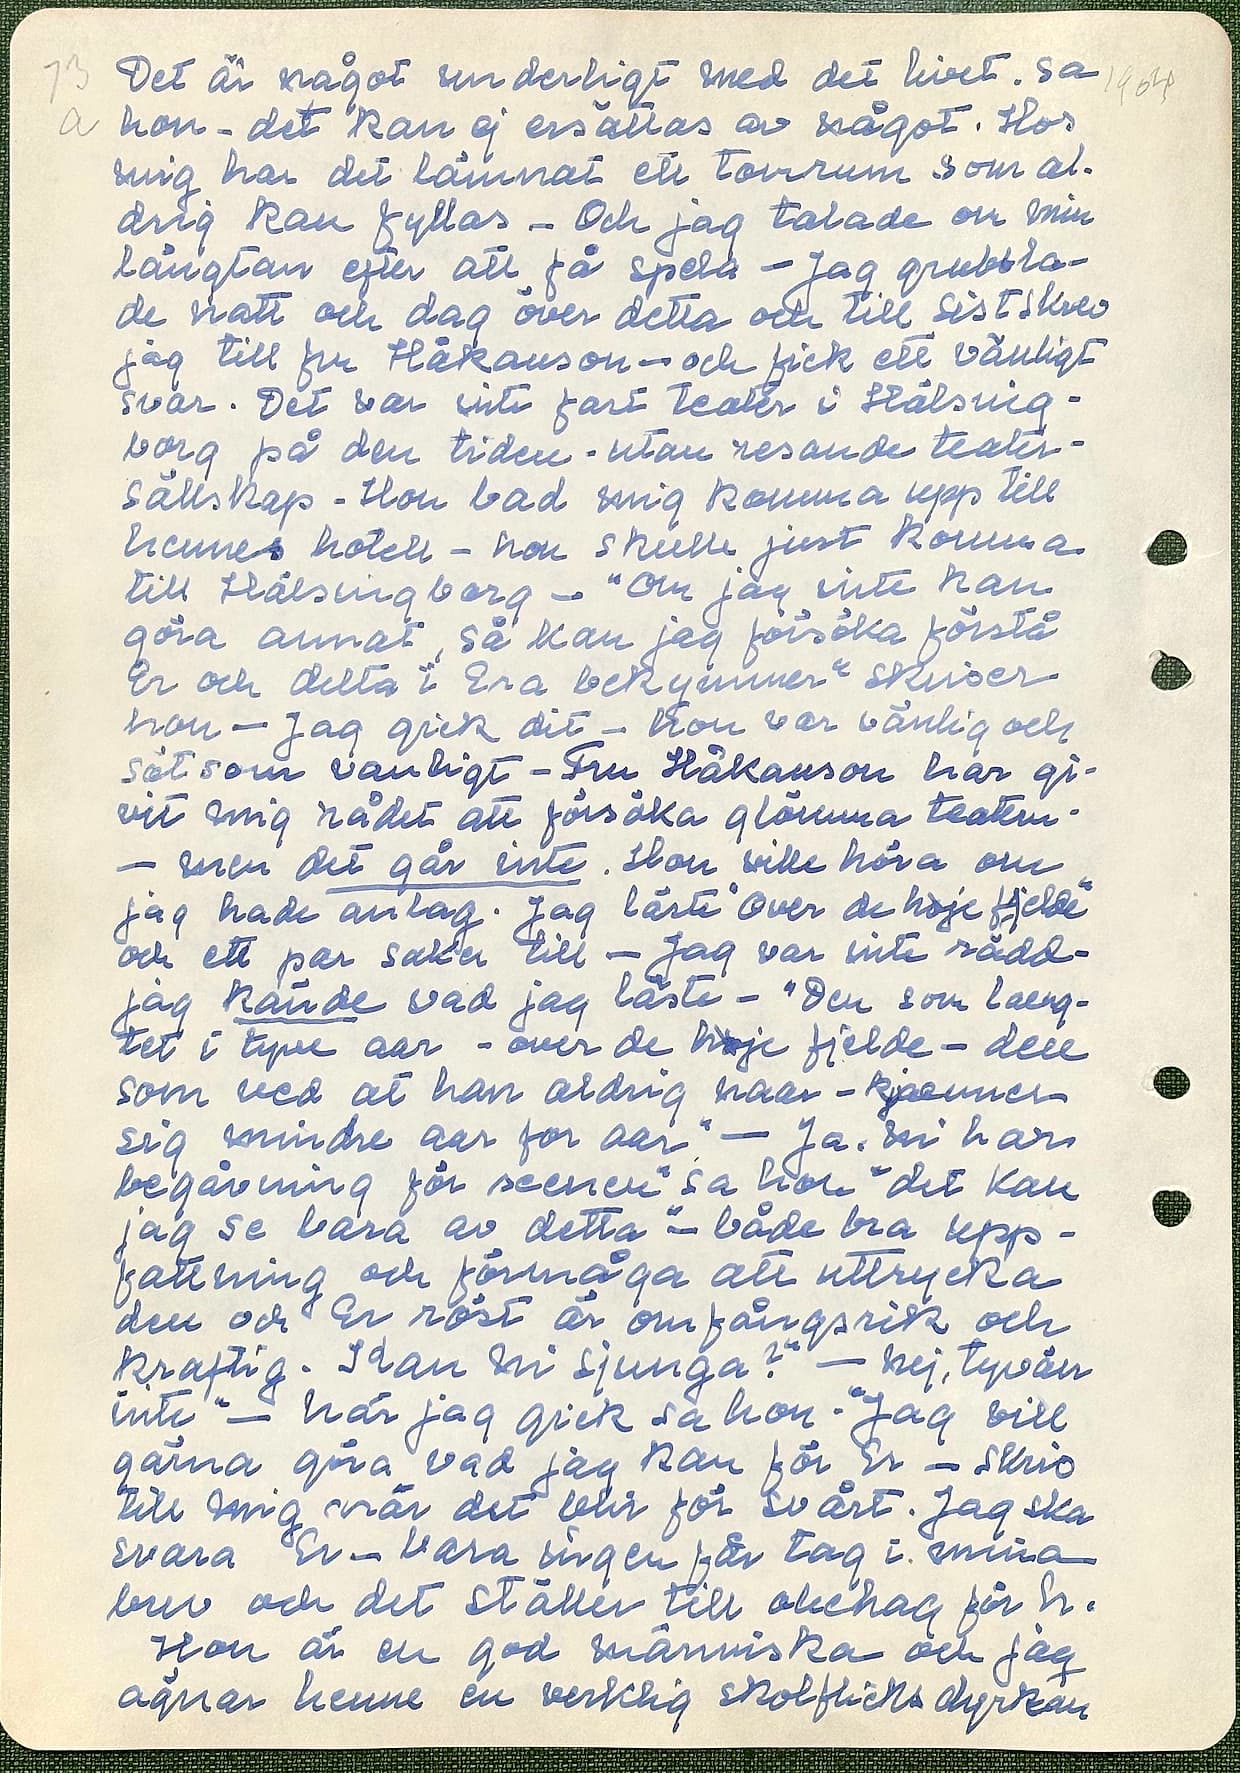 73
a
1904
Det är något underligt med det livet. sa
hon - det kan ej ersättas av något. Hos
mig har det lämnat ett tomrum som al-
drig kan fyllas - Och jag talade om min
längtan efter att få spela - Jag grubbla-
de natt och dag över detta och till sist skrev
jag till fru Håkanson - och fick ett vänligt
svar. Det var inte fast teater i Hälsing-
borg på den tiden - utan resande teater-
sällskap - Hon bad mig komma upp till
hennes hotell - hon skulle just komma
till Hälsingborg - "Om jag inte kan
göra annat, så kan jag försöka förstå
Er och delta i Era bekymmer" skriver
hon - Jag gick dit - Hon var vänlig och
söt som vanligt - Fru Håkanson har gi-
vit mig rådet att försöka glömma teatern -
- men det går inte. Hon ville höra om
jag hade anlag. Jag läste "Over de høje fjelde"
och ett par saker till - Jag var inte rädd -
jag kände vad jag läste - "Den som laeng-
tet i tyve aar - over de høje fjelde - den
som ved at han aldrig naar - kjaenner
sig mindre aar for aar" - Ja. Ni har
begåvning för scenen" sa hon "det kan
jag se bara av detta" - både bra upp-
fattning och förmåga att uttrycka
den och Er röst är omfångsrik och
kraftig. Kan Ni sjunga?" - Nej, tyvärr
inte" - När jag gick sa hon - "Jag vill
gärna göra vad jag kan för Er - skriv
till mig när det blir för svårt. Jag ska
svara Er - bara ingen får tag i mina
brev och det ställer till obehag för Er.
Hon är en god människa och jag
ägnar henne en verklig skolflicksdyrkan